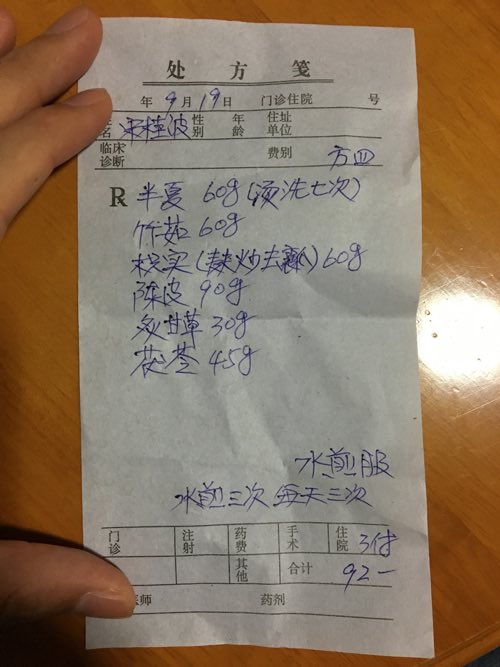 处方笺
年 9月 19日 门诊住院 号
名 宋桂波 性别 年龄 住址单位
临床诊断 费别 方四
R 半夏 60g (汤洗七次)
竹茹 60g
枳实 (麸炒去瓤) 60g
陈皮 90g
炙甘草 30g
茯苓 45g
水煎服
水煎三次 每天三次
门诊 注射 药费 手术 住院 3付
其他 合计 92一
医师 药剂